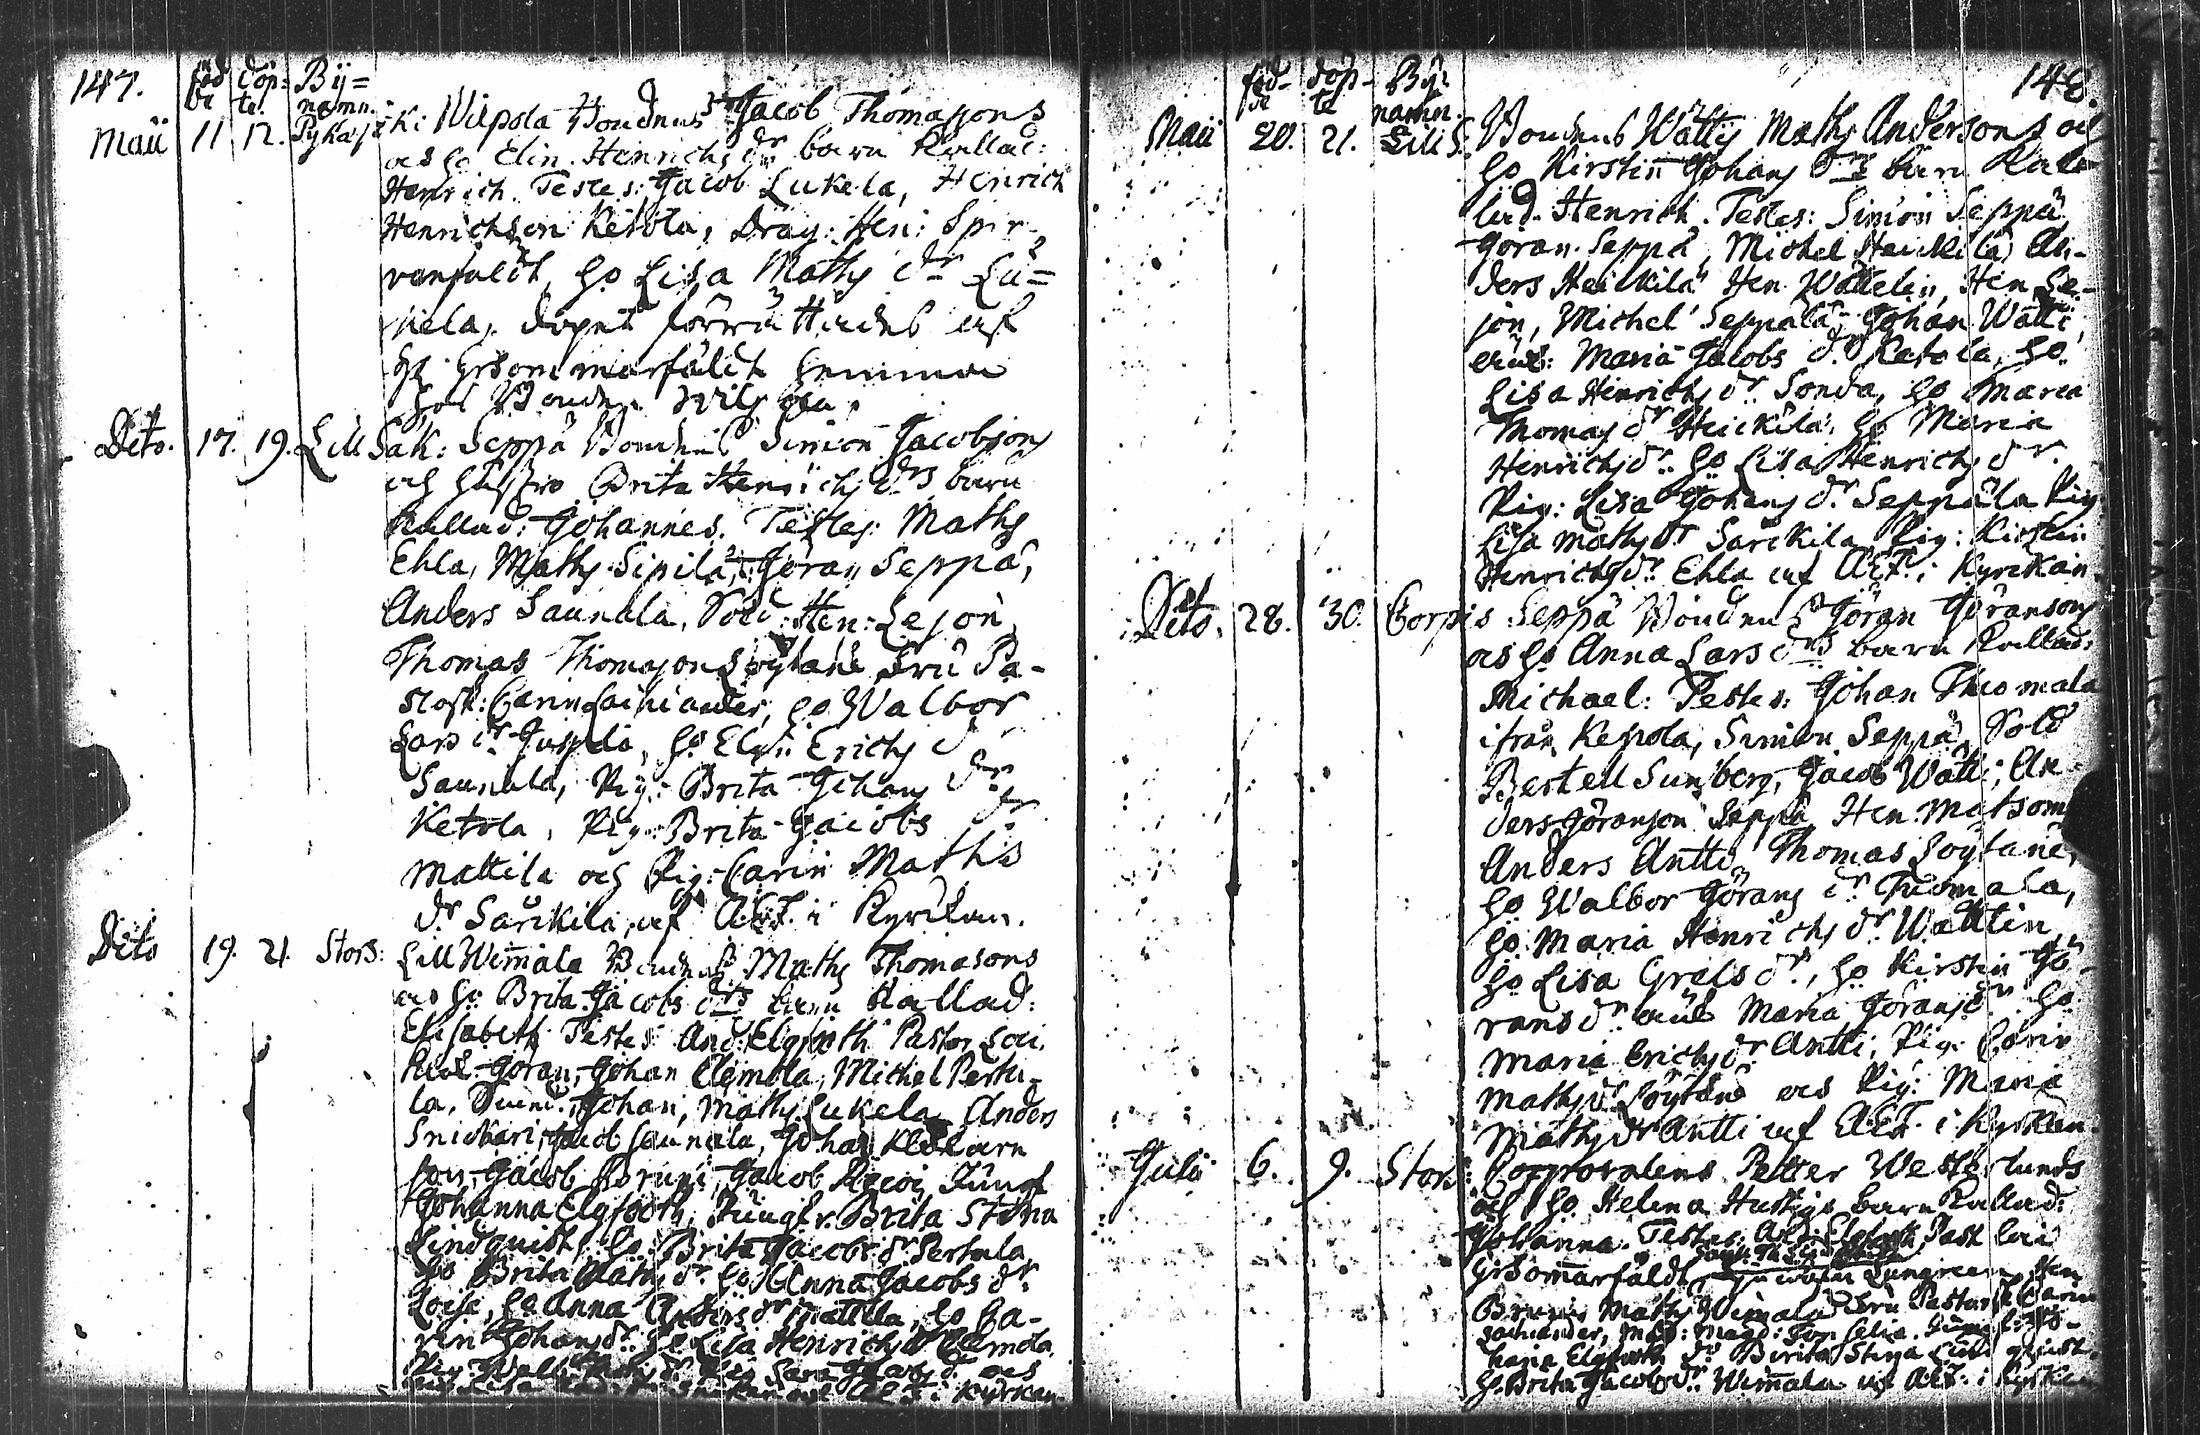 147.
föd de döp= te. Bÿ= namn.
Maii 11 12. Pyhajoki: Wilpola Bondens Jacob Thomasons
och ho Elin Henrichs dr barn Kallad:
Henrich. Testes: Jacob Lukela, Henrich
Henrichson Ketola, Drag: Hen: Spir
renfäldt, ho Lisa Maths dr Lu=
kela, döpet förrättades af
H: Grsommarfäldt hemma
hos Bonden
Dito. 17. 19. Lill Säk: Seppä Bondens Simon Jacobsons
och hustro Brita Henrichs drs barn
Kallad: Johannes. Testes: Maths
Ehla, Maths Sipilä, Göran Seppä,
Anders Saunala, Sold: Hen: Lejon,
Thomas Thomason Löytäne Fru Pa-
storsk: Carin Lachiander, ho Walbor
Lars dr Juspila, ho Elin Erichs dr
Saunala, Pig: Brita Johans dr
Ketola, Pig: Brita Jacobs dr
Mattila och Pig: Carin Maths
dr Särkilä, af AEF. i Kyrkan.
Dito 19. 21. Stors: Lill Wimala Bondens Maths Thomasons
och ho Brita Jacobs drs barn Kallad:
Elisabeth Testes And: Elgfoth Pastor Loci,
Göran, Johan Clemola, Michel Pertu-
la, Johan, Maths Lukela, Anders
Snickari, Jacob Saunala, Johan
Jacob Jacob Jungf
Johanna Elgfooth, Jungfr. Brita Stina
Lindquist, ho Brita Jacobs dr Pertula
ho Brita Maths dr ho Anna Jacobs dr
ho Anna Anders dr Mattila, ho Ca-
rin Johans dr ho Lisa Henrichs dr Clemola
Pig: dr Pig: Sara dr och
AEF i Kyrkan.
148.
föd- de döp- te Bÿ= namn.
Maii 20. 21. Lill S. Bondens Wätti Maths Andersons och
ho Kirstin Johans drs barn Kal-
lad. Henrich. Testes: Simon Seppä
Göran Seppä, Michel Heickilä, An-
ders Heickilä Hen Wättelin, Hen Le-
jon, Michel Seppälä, Johan Wätti,
Maria Jacobs dr Ketola, ho
Lisa Henrichs dr Sonda, ho Maria
Thomas dr Heickilä, ho Maria
Henrichs dr. ho Lisa Henrichs dr.
Pig: Lisa Johans dr Seppälä Pig
Lisa Maths dr Särkilä Pig: Kirstin
Henrichs dr Ehla af AEF. i Kyrckan
Dito. 28. 30. Corpis Seppä Bondens Göran Göransons
och ho Anna Lars drs barn Kallad:
Michael: Testes: Johan Thuomala
ifrån Kepola, Simon Seppä, Sold
Bertell Sunberg, Jacob Wätti, An
ders Göranson Seppä Hen Matsom
Anders Antti, Thomas Löytäne,
ho Walbor Görans dr Thuomala,
ho Maria Henrichs dr Wättlin,
ho Lisa Grels dr, ho Kirstin Gö-
rans dr Maria Görans dr ho
Maria Erichs dr Antti, Pig: Carin
Maths dr Löytäne och Pig: Maria
Maths dr Antti af AEF. i Kyrkan.
Julii 6. 9. Stors: Corporalens Petter Westerlunds
och ho Helena Hastigs barn Kallad:
Johanna. Testes: And: Elgfoth Past Loci
Grsomarfäldt, Lungreen, Hen
Bruni, Maths Wimala Fru Pastorsk Carin
Lachiander,
Elgfoth dr Birita Stina Lindquist.
ho Brita Jacobs dr. Wimala af AEF. i Kyrkan